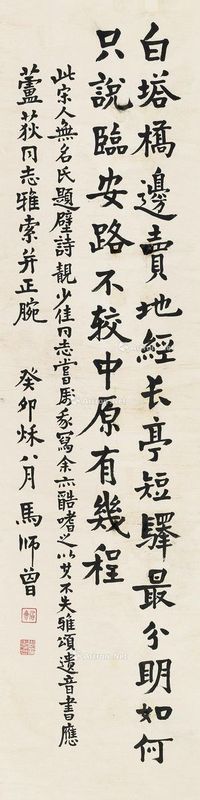 白塔橋邊賣地經長亭短驛最分明如何
只說臨安路不較中原有幾程
此宋人無名氏題壁詩靚少佳同志嘗馬彖寫余亦酷嗜之以其不失雅頌遺音書應
蘆荻同志雅索并正腕
癸卯秌八月馬師曾